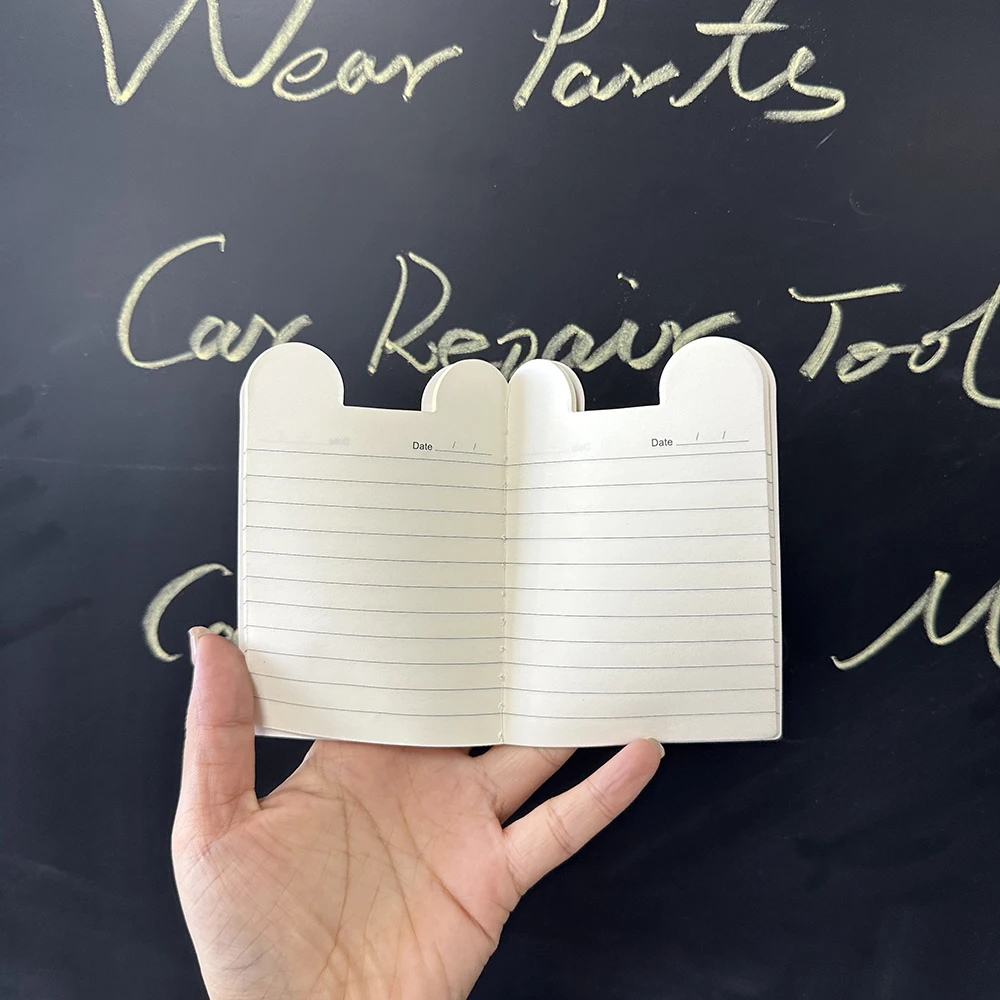 Wear Parts
Car Repair Tool
Date / /
Date / /